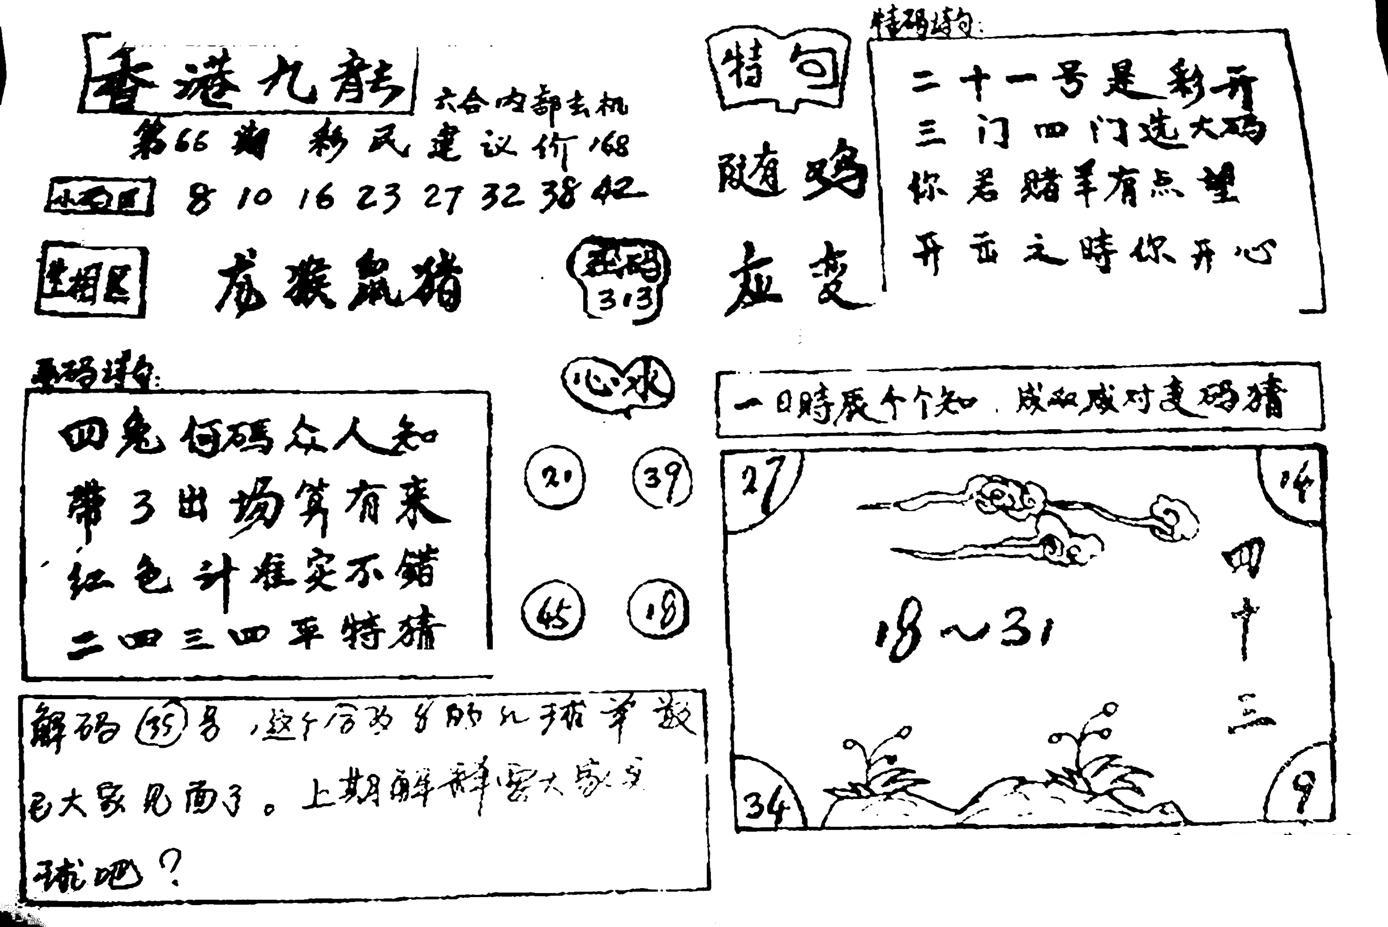 香港九龍
六合内部玄机
第66期 彩民建议价168
小码区 8 10 16 23 27 32 38 42
生相区 龙猴鼠猪
玄码 313
码诗句:
四兔何碼众人知
带了出场算有来
红色计准实不错
二四三四平特猜
心水
21 39
45 18
解码35号,这个
已大家见面了。上期解释
球吧?
特句
随鸡
应变
特码诗句:
二十一号是彩开
三门四门选大码
你若赌羊有点望
开出之時你开心
一日時辰个个知.成双成对变码猜
27 14
四十三
18~31
34 9